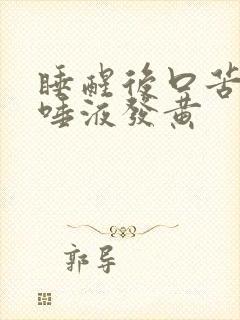 睡醒後口苦
唾液發黃
郭导